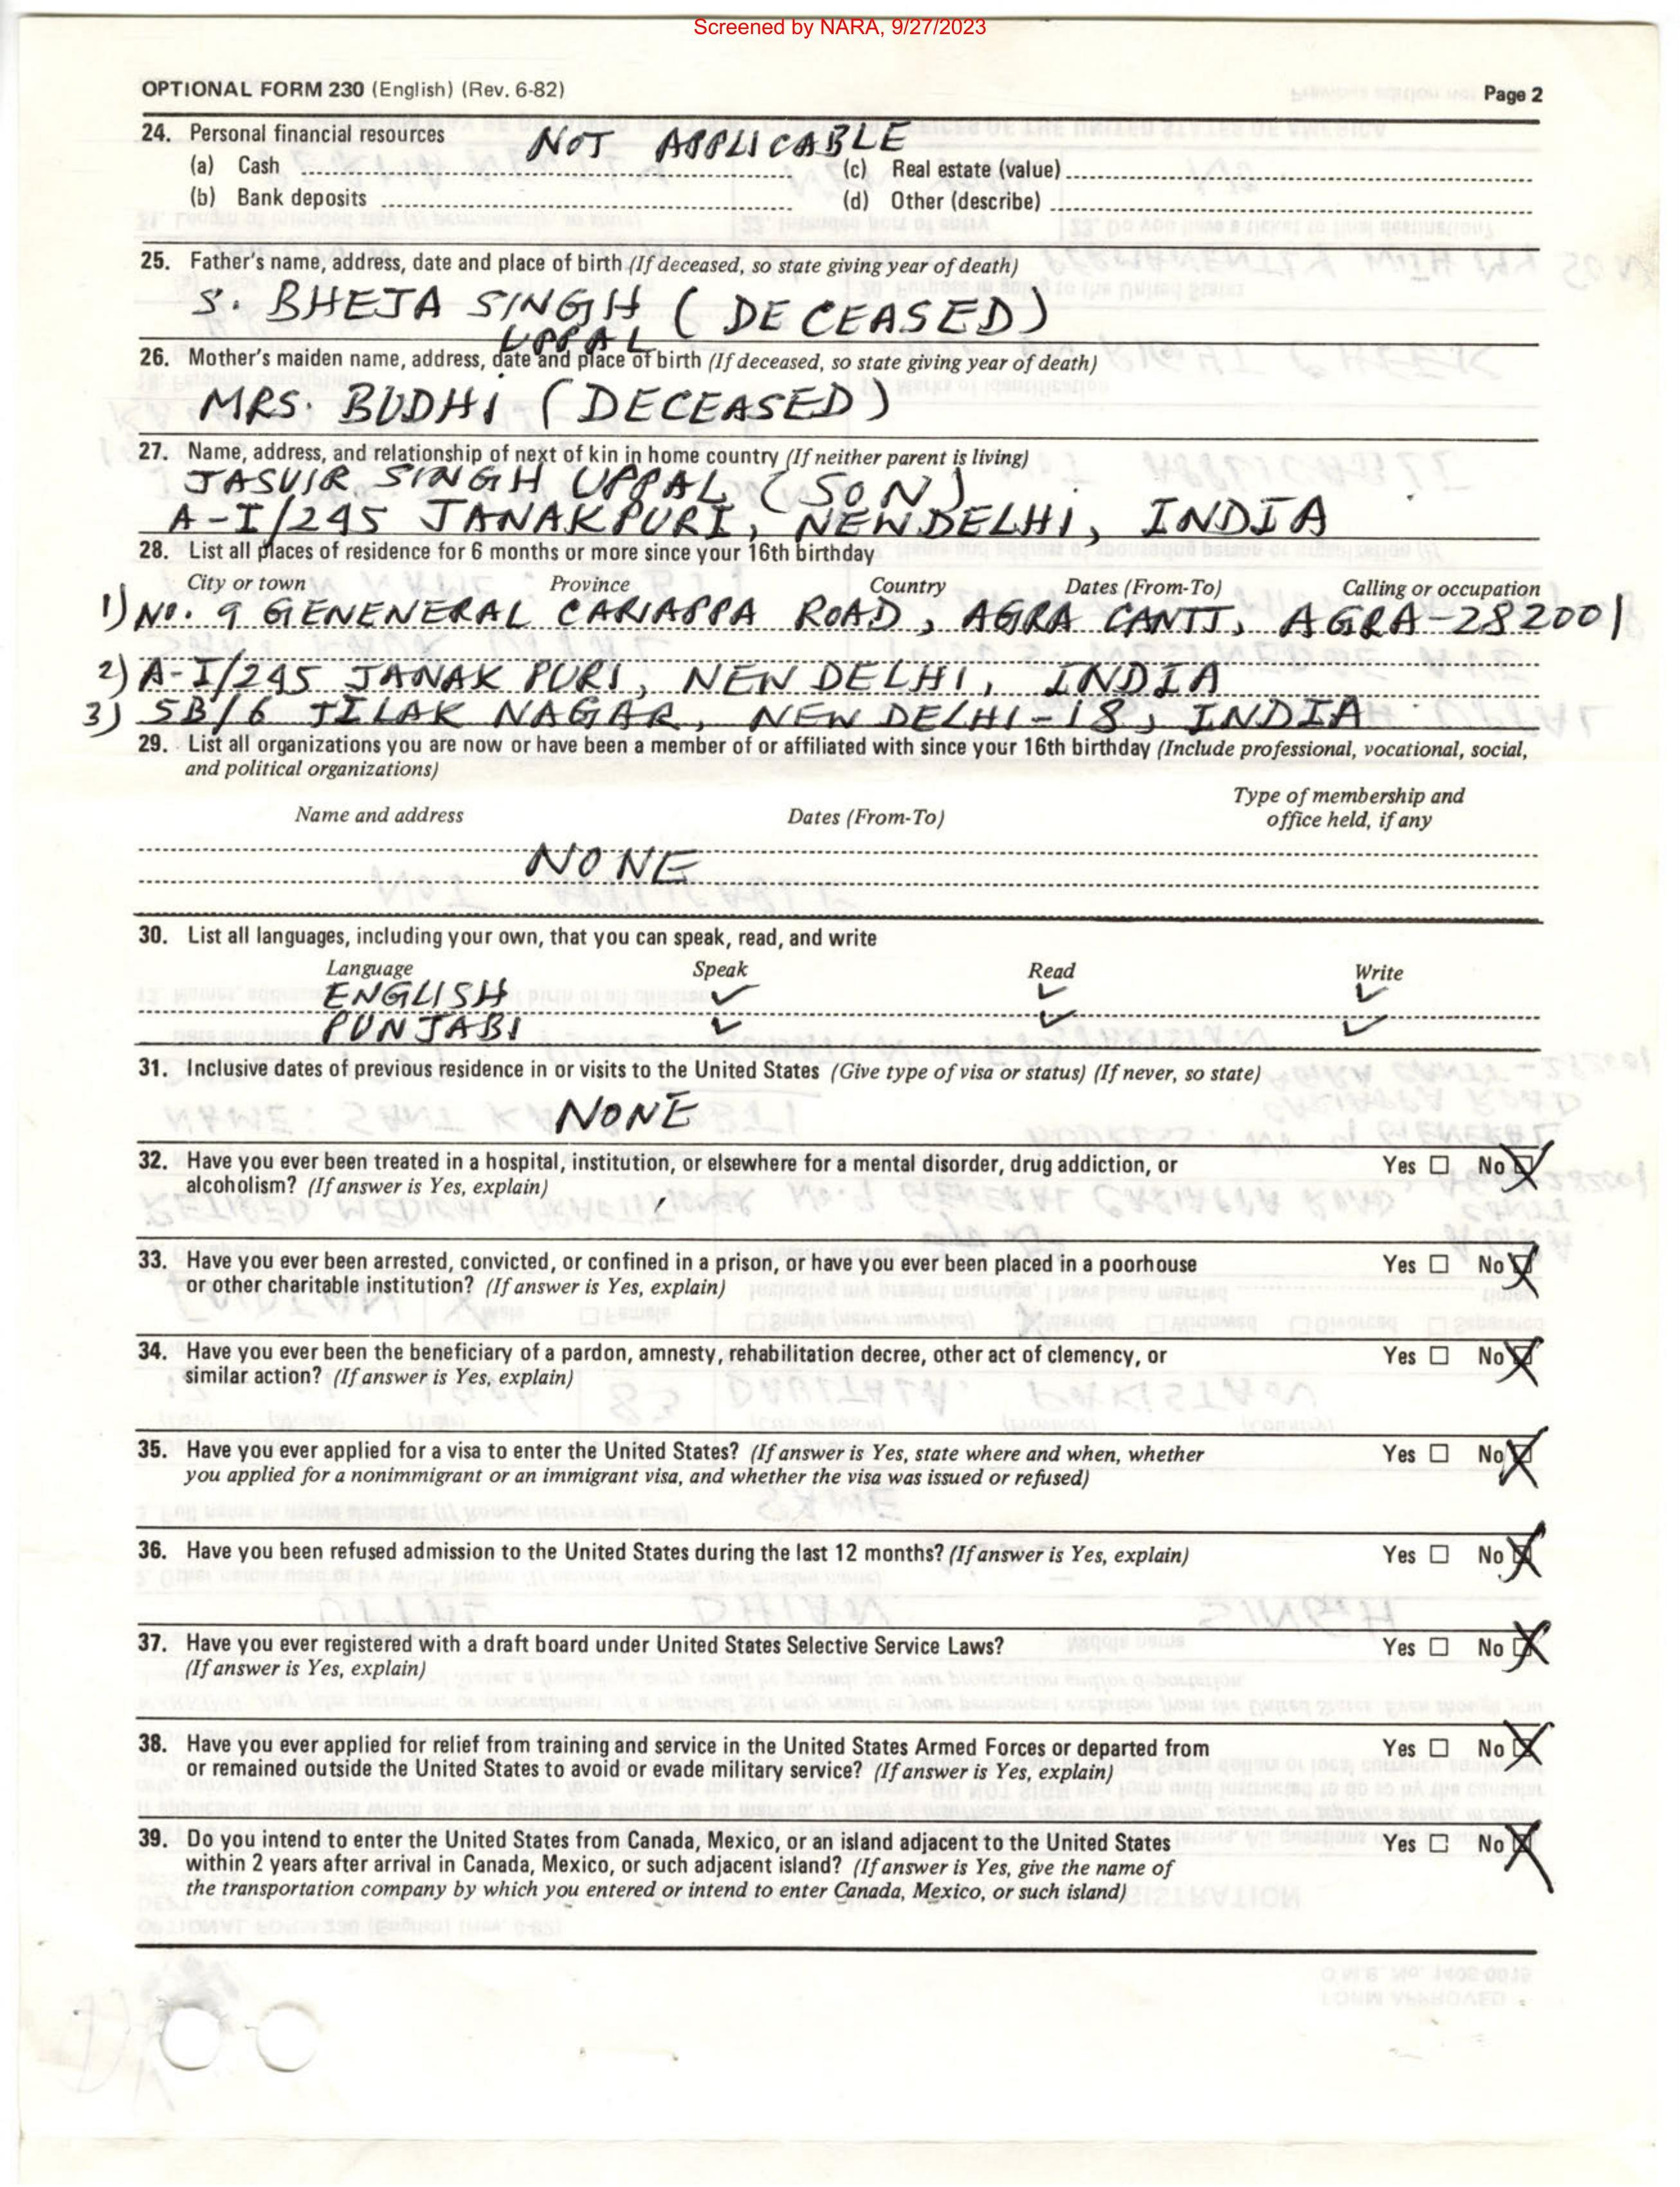 Screened by NARA, 9/27/2023
OPTIONAL FORM 230 (English) (Rev. 6-82) Page 2
24. Personal financial resources NOT APPLICABLE
(a) Cash (c) Real estate (value)
(b) Bank deposits (d) Other (describe)
25. Father's name, address, date and place of birth (If deceased, so state giving year of death)
S. BHEJA SINGH (DECEASED)
UPPAL
26. Mother's maiden name, address, date and place of birth (If deceased, so state giving year of death)
MRS. BUDHi (DECEASED)
27. Name, address, and relationship of next of kin in home country (If neither parent is living)
JASVIR SINGH UPPAL (SON)
A-I/245 JANAKPURI, NEW DELHi, INDIA
28. List all places of residence for 6 months or more since your 16th birthday
City or town Province Country Dates (From-To) Calling or occupation
1) NO. 9 GENENERAL CARIAPPA ROAD, AGRA CANTT, AGRA-282001
2) A-I/245 JANAK PURI, NEW DELHI, INDIA
3) 5B/6 TILAK NAGAR, NEW DELHI-18, INDIA
29. List all organizations you are now or have been a member of or affiliated with since your 16th birthday (Include professional, vocational, social,
and political organizations)
Name and address Dates (From-To) Type of membership and
office held, if any
NONE
30. List all languages, including your own, that you can speak, read, and write
Language Speak Read Write
ENGLISH ✓ ✓ ✓
PUNJABI ✓ ✓ ✓
31. Inclusive dates of previous residence in or visits to the United States (Give type of visa or status) (If never, so state)
NONE
32. Have you ever been treated in a hospital, institution, or elsewhere for a mental disorder, drug addiction, or Yes ☐ No ☒
alcoholism? (If answer is Yes, explain)
33. Have you ever been arrested, convicted, or confined in a prison, or have you ever been placed in a poorhouse Yes ☐ No ☒
or other charitable institution? (If answer is Yes, explain)
34. Have you ever been the beneficiary of a pardon, amnesty, rehabilitation decree, other act of clemency, or Yes ☐ No ☒
similar action? (If answer is Yes, explain)
35. Have you ever applied for a visa to enter the United States? (If answer is Yes, state where and when, whether Yes ☐ No ☒
you applied for a nonimmigrant or an immigrant visa, and whether the visa was issued or refused)
36. Have you been refused admission to the United States during the last 12 months? (If answer is Yes, explain) Yes ☐ No ☒
37. Have you ever registered with a draft board under United States Selective Service Laws? Yes ☐ No ☒
(If answer is Yes, explain)
38. Have you ever applied for relief from training and service in the United States Armed Forces or departed from Yes ☐ No ☒
or remained outside the United States to avoid or evade military service? (If answer is Yes, explain)
39. Do you intend to enter the United States from Canada, Mexico, or an island adjacent to the United States Yes ☐ No ☒
within 2 years after arrival in Canada, Mexico, or such adjacent island? (If answer is Yes, give the name of
the transportation company by which you entered or intend to enter Canada, Mexico, or such island)